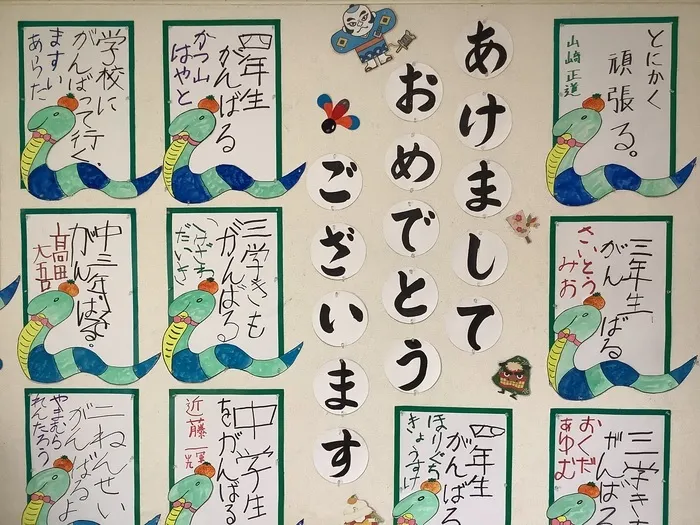 あけまして
おめでとう
ございます
とにかく
頑張る。
山崎正道
三年生
がんばる
さいとう
みお
三学きも
がんばる
おくだ
あゆむ
四年生
がんばる
ほりぐち
きょうすけ
四年生
がんばる
かつ山
はやと
学校に
がんばって行く。
ますい
あらた
三学きも
がんばる
だいき
中三年生
がんばる。
高田
大吾
中学生
をがんばる
近藤
二ねんせい
がんばるよ
やまむら
れんたろう